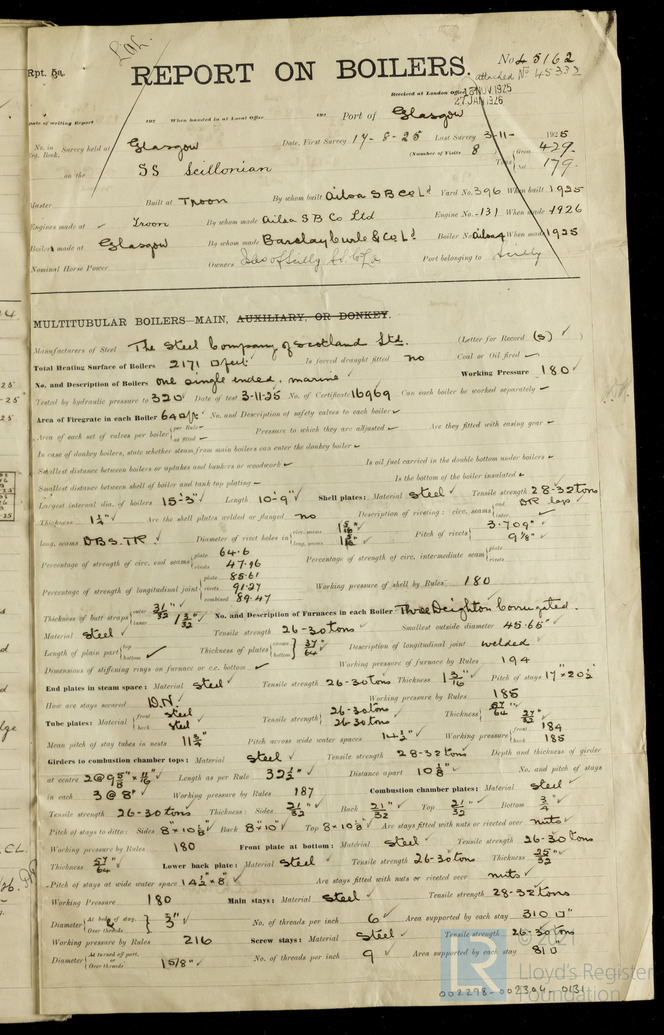 Rpt. 5a.
No 45162
attached No 45332
REPORT ON BOILERS.
Received at London Office 13 NOV 1925
27 JAN 1926
Date of writing Report 192 When handed in at Local Office 192 Port of Glasgow
No. in Reg. Book. Survey held at Glasgow Date, First Survey 17-8-25 Last Survey 3-11- 1925
(Number of Visits 8 Gross 429
on the SS Scillonian Tons Net 179
Master Built at Troon By whom built Ailsa S B Co Ld Yard No. 396 When built 1925
Engines made at Troon By whom made Ailsa S B Co Ltd Engine No. 131 When made 1926
Boilers made at Glasgow By whom made Barclay Curle & Co Ld Boiler No. When made 1925
Nominal Horse Power Owners Isles of Scilly S.S. Co Ld Port belonging to Scilly
MULTITUBULAR BOILERS—MAIN, AUXILIARY, OR DONKEY.
Manufacturers of Steel The Steel Company of Scotland Ltd. (Letter for Record (S) ✓
Total Heating Surface of Boilers 2171 □ feet Is forced draught fitted no Coal or Oil fired
No. and Description of Boilers one single ended, marine Working Pressure 180
Tested by hydraulic pressure to 320 Date of test 3-11-25 No. of Certificate 16969 Can each boiler be worked separately
Area of Firegrate in each Boiler 64 □ft No. and Description of safety valves to each boiler
Area of each set of valves per boiler { per Rule as fitted Pressure to which they are adjusted Are they fitted with easing gear
In case of donkey boilers, state whether steam from main boilers can enter the donkey boiler
Smallest distance between boilers or uptakes and bunkers or woodwork Is oil fuel carried in the double bottom under boilers
Smallest distance between shell of boiler and tank top plating Is the bottom of the boiler insulated
Largest internal dia. of boilers 15'-3" Length 10'-9" Shell plates: Material Steel Tensile strength 28-32 tons
Thickness 1¼" Are the shell plates welded or flanged no Description of riveting: circ. seams { end DR lap inter.
long. seams DBS.TR. Diameter of rivet holes in { circ. seams 1 5/16 long. seams 1 5/16 Pitch of rivets { 3.709" 9⅛"
Percentage of strength of circ. end seams { plate 64.6 rivets 47.96 Percentage of strength of circ. intermediate seam { plate rivets
Percentage of strength of longitudinal joint { plate 85.61 rivets 91.27 combined 89.47 Working pressure of shell by Rules 180
Thickness of butt straps { outer 31/32" inner 1 3/32" No. and Description of Furnaces in each Boiler Three Deighton Corrugated.
Material Steel Tensile strength 26-30 tons Smallest outside diameter 45.65"
Length of plain part { top bottom Thickness of plates { crown bottom 37/64" Description of longitudinal joint welded
Dimensions of stiffening rings on furnace or c.c. bottom Working pressure of furnace by Rules 194
End plates in steam space: Material Steel Tensile strength 26-30 tons Thickness 1 3/16" Pitch of stays 17" x 20½"
How are stays secured D.N. Working pressure by Rules 185
Tube plates: Material { front Steel back Steel Tensile strength { 26-30 tons 26-30 tons Thickness { 57/64" 27/32"
Mean pitch of stay tubes in nests 11¾" Pitch across wide water spaces 14½" Working pressure { front 184 back 185
Girders to combustion chamber tops: Material Steel Tensile strength 28-32 tons Depth and thickness of girder
at centre 2@9⅝" x 11/16" Length as per Rule 32½" Distance apart 10⅛" No. and pitch of stays
in each 3 @ 8" Working pressure by Rules 187 Combustion chamber plates: Material Steel
Tensile strength 26-30 tons Thickness: Sides 21/32" Back 21/32" Top 21/32" Bottom ¾"
Pitch of stays to ditto: Sides 8" x 10⅛" Back 8" x 10" Top 8" x 10⅛" Are stays fitted with nuts or riveted over nuts
Working pressure by Rules 180 Front plate at bottom: Material Steel Tensile strength 26-30 tons
Thickness 57/64" Lower back plate: Material Steel Tensile strength 26-30 tons Thickness 25/32"
Pitch of stays at wide water space 14½" x 8" Are stays fitted with nuts or riveted over nuts
Working Pressure 180 Main stays: Material Steel Tensile strength 28-32 tons
Diameter { At body of stay, or Over threads No. of threads per inch 6 Area supported by each stay 310 □"
Working pressure by Rules 216 Screw stays: Material Steel Tensile strength 26-30 tons
Diameter { At turned off part, or Over threads 1 5/8" No. of threads per inch 9 Area supported by each stay 81 □"
© 2021
Lloyd's Register
Foundation
002298-002304-0131